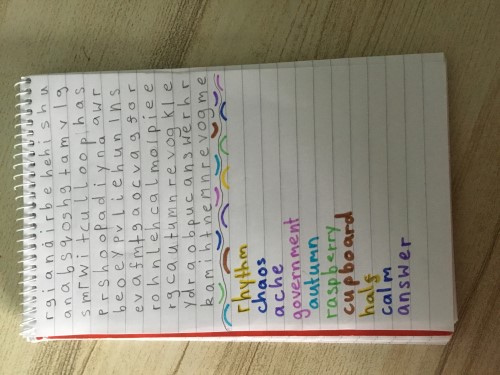 r g i a n a i r b e h e h i s h u
a n a b s q o s h g t a m v l g
s m r w i t c u l l o o p i h a s
p r s h o o p a d i y n a a w r
b e o c y p v l i e h u n l n s
e v a f m t g a o c v a s g a r
r o h n l e h c a l m o l p i e e
r g c a u t u m n r e v o g k l e
y d r a o b p u c a n s w e r h r
k a m i h t n e m n r e v o g m e
rhythm
chaos
ache
government
autumn
raspberry
cupboard
half
calm
answer